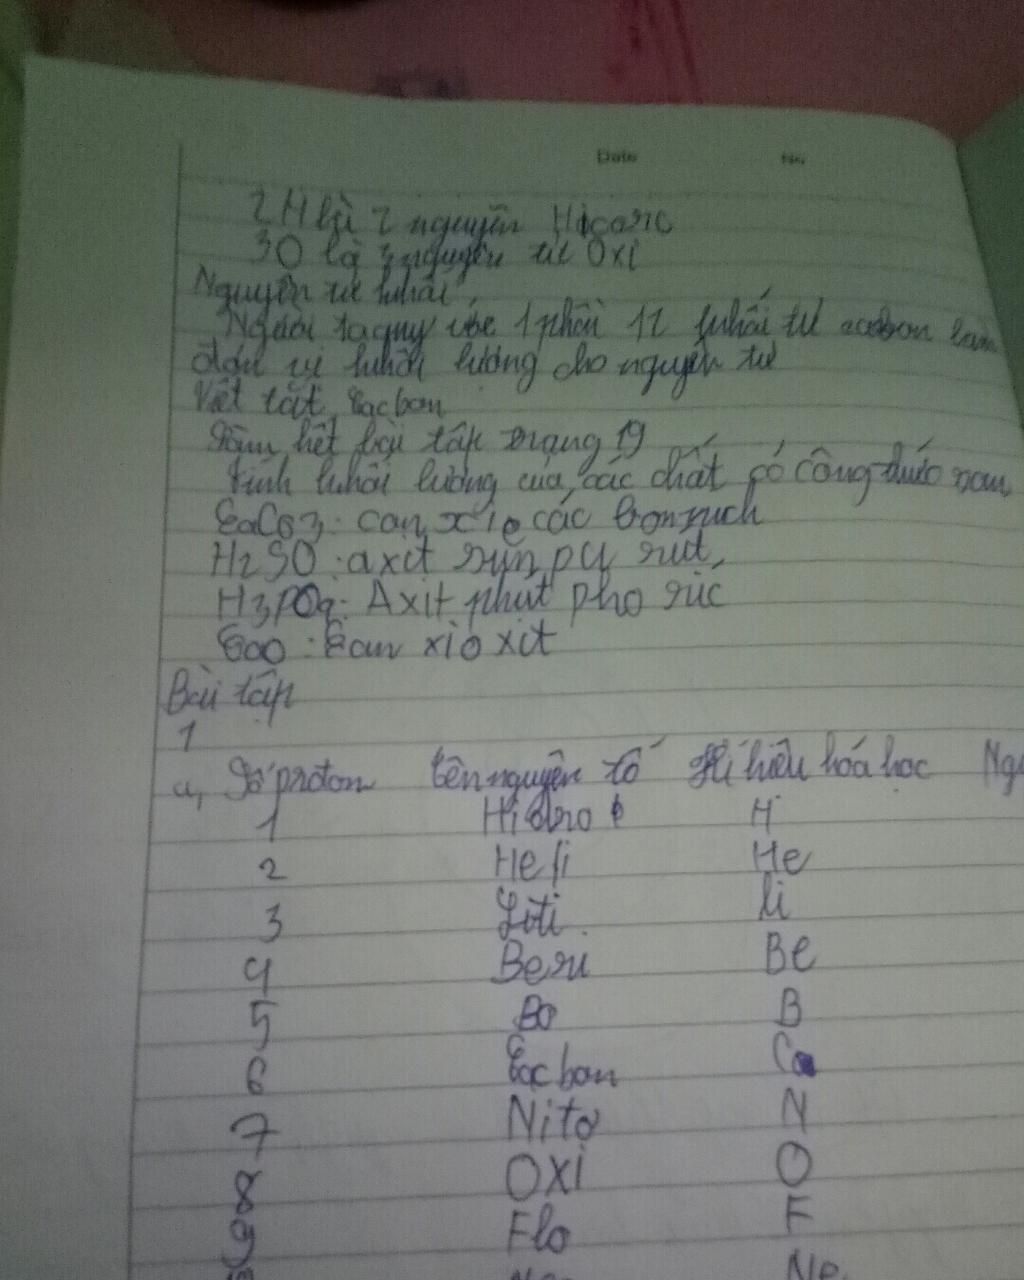 Date No
2H là 2 nguyên
3O là 3 nguyên tử Oxi
Nguyên tử khối
Người ta quy ước 1 phần 12 khối tử cacbon làm
đơn vị khối lượng cho nguyên tử
Viết tắt Cacbon
Làm hết bài tập trang 19
Tính khối lượng của các chất có công thức sau
CaCo3: can xi các bon
H2SO: axit
H3PO4: Axit phốt pho ric
Cao: Can xi o xit
Bài tập
1
a, Số proton tên nguyên tố Kí hiệu hóa học Ngu
1 Hidro H
2 Heli He
3 Liti Li
4 Beri Be
5 Bo B
6 Cacbon C
7 Nitơ N
8 OXi O
9 Flo F
Ne